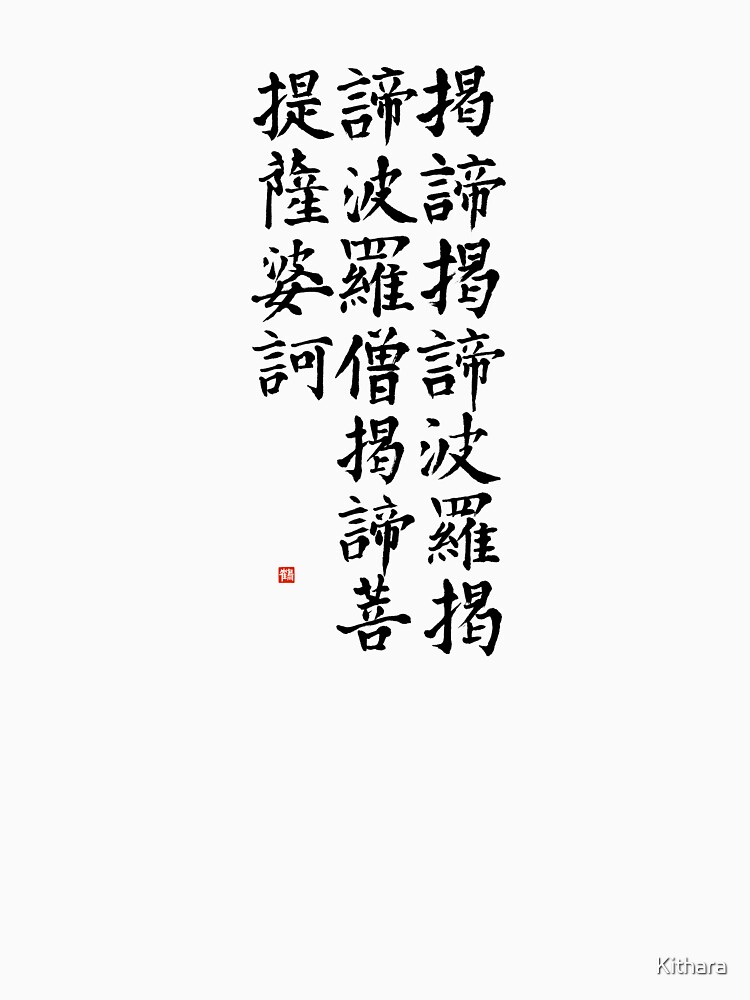 揭諦揭諦波羅揭
諦波羅僧揭諦菩
提薩婆訶
鶴
Kithara